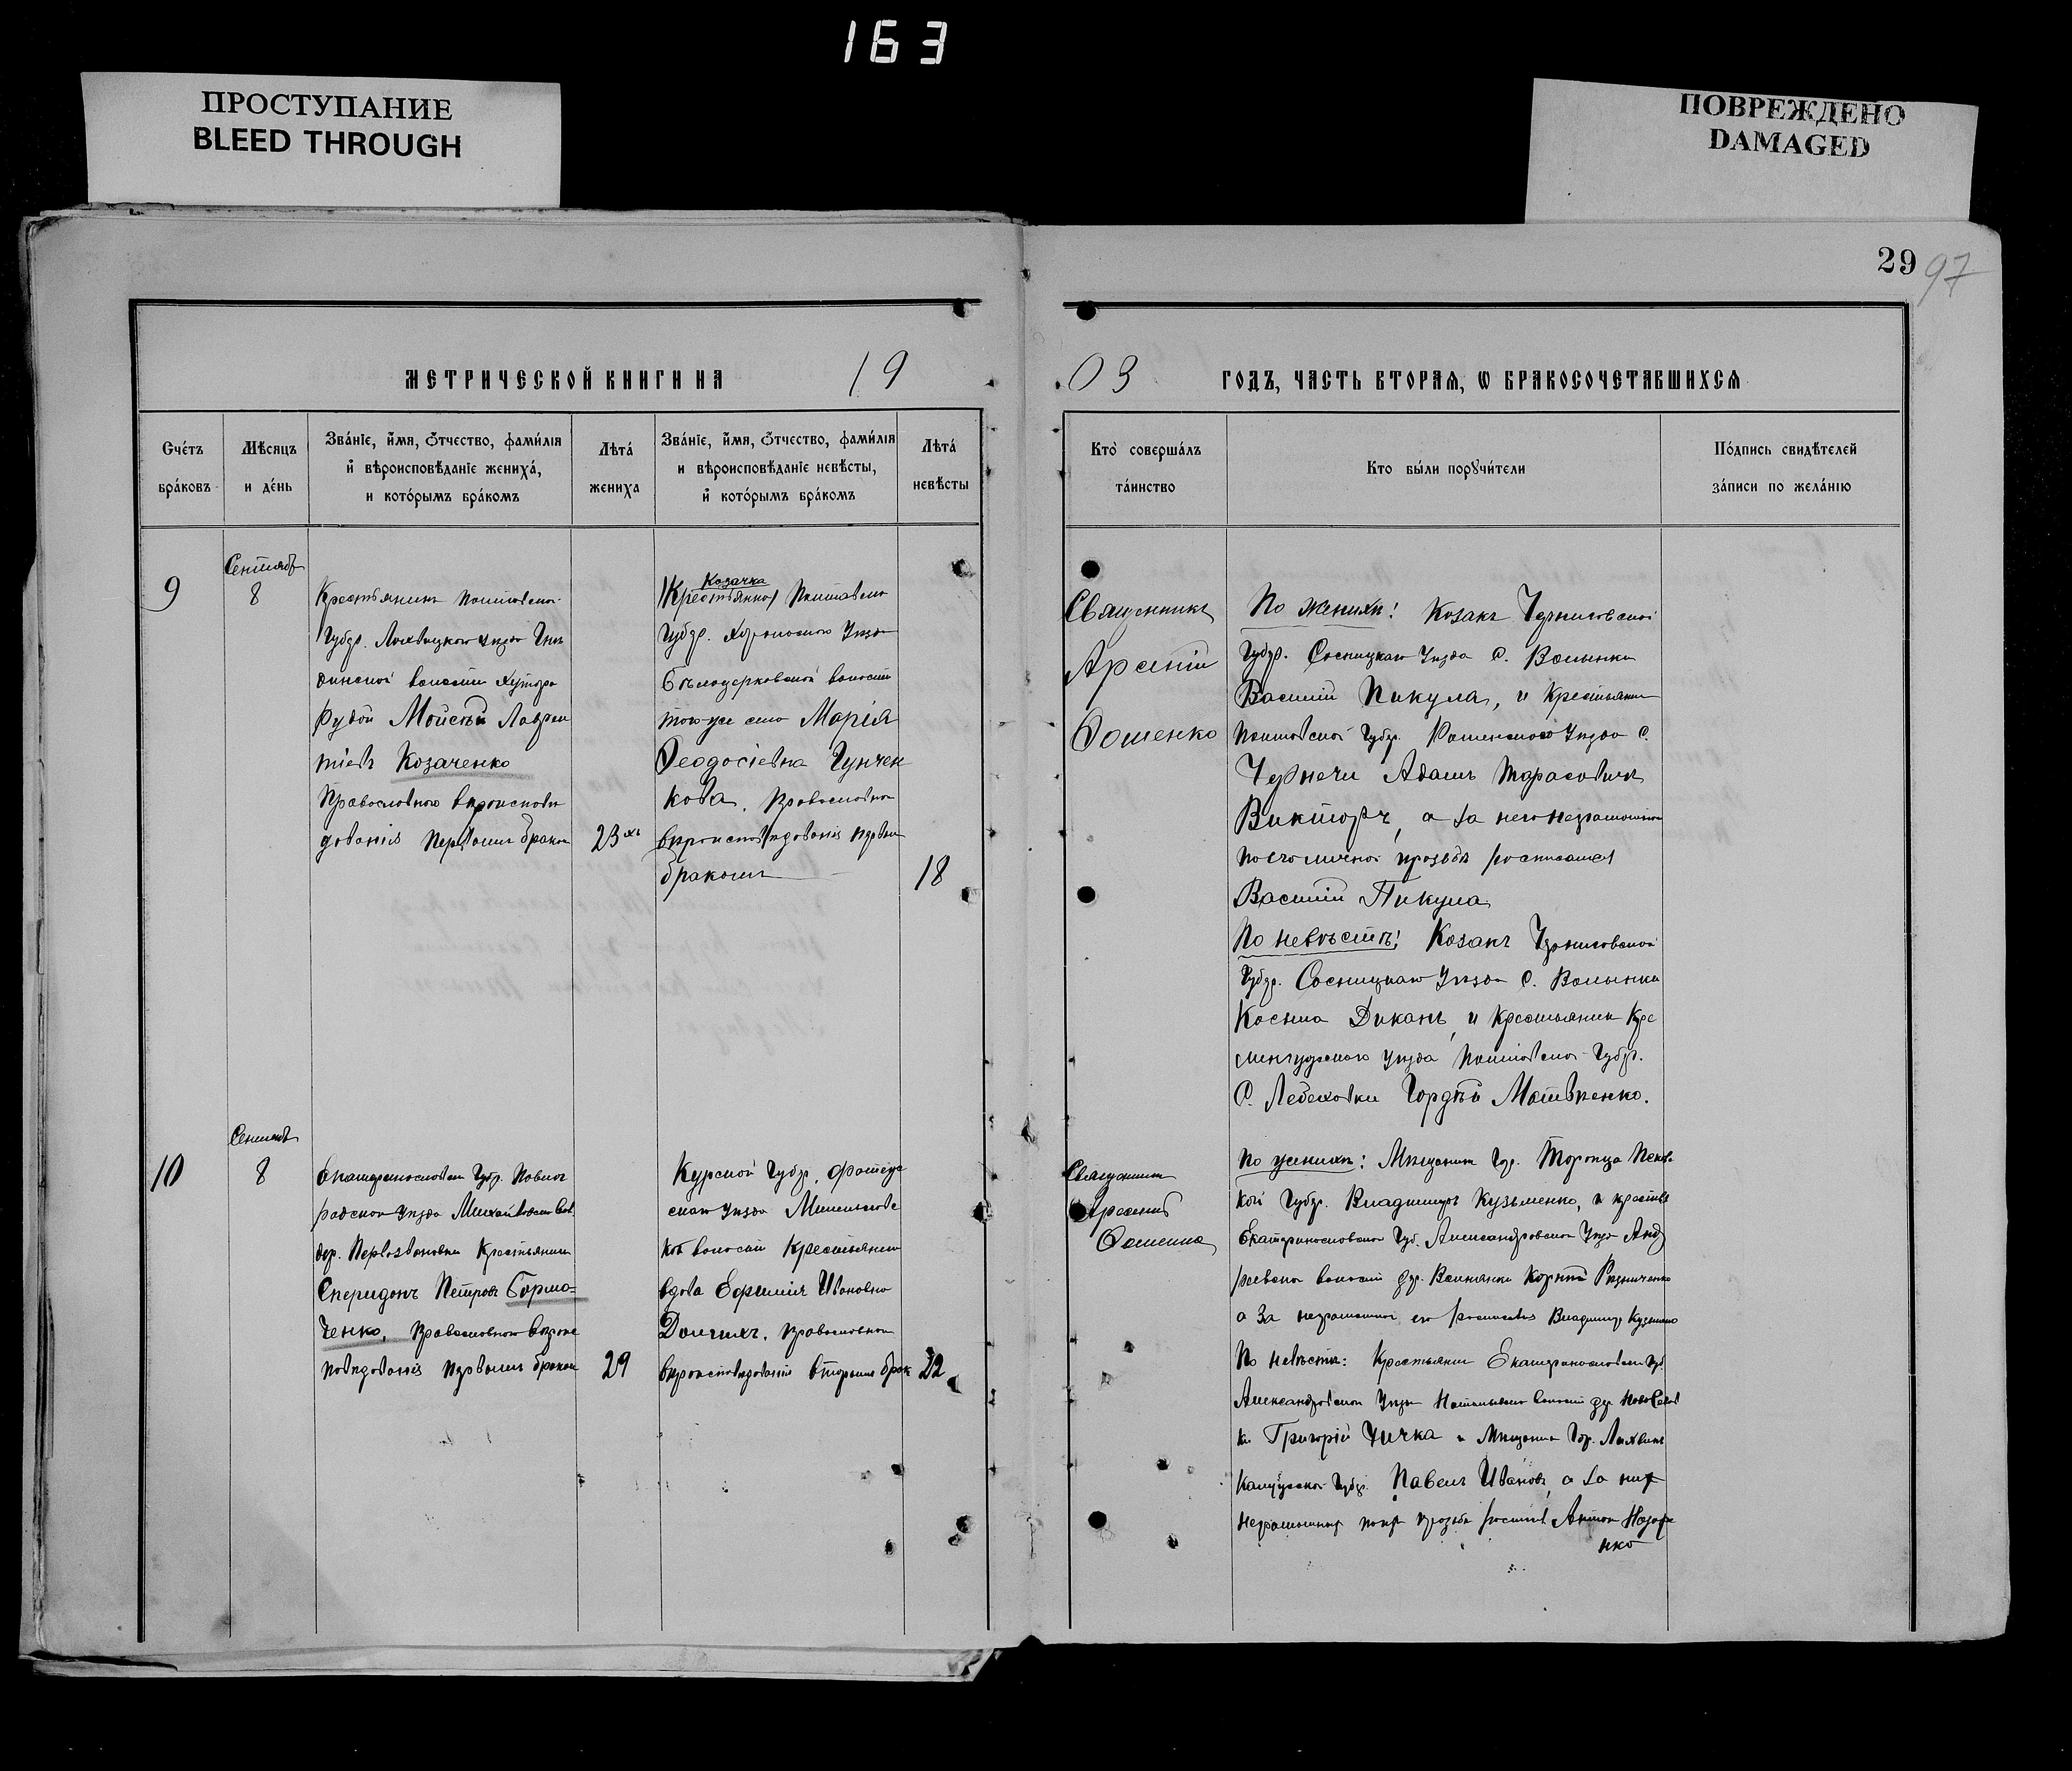 163
ПРОСТУПАНИЕ
BLEED THROUGH
ПОВРЕЖДЕНО
DAMAGED
29 97
МЕТРИЧЕСКОЙ КНИГИ НА 19
03 ГОДЪ, ЧАСТЬ ВТОРАѦ, Ѡ БРАКОСОЧЕТАВШИХСѦ
Счетъ
браковъ
Мѣсяцъ
и день
Званіе, имя, отчество, фамилія
и вѣроисповѣданіе жениха,
и которымъ бракомъ
Лѣта
жениха
Званіе, имя, отчество, фамилія
и вѣроисповѣданіе невѣсты,
и которымъ бракомъ
Лѣта
невѣсты
Кто совершалъ
таинство
Кто были поручители
Подпись свидѣтелей
записи по желанію
9
Сентяб
8
Крестьянинъ Полтавской
Губер. Лохвицкаго уѣзда
волости Хутора
Рудой Мойсей Лаврен
тіевъ Козаченко
Православнаго вѣроисповѣ
дованія первымъ бракомъ
23хъ
Козачка
(Крестьянка) Полтавской
Губер. Хорольскаго Уѣзда
Бѣлоцерковской волости
того-же села Марія
Ѳеодосіевна Гунчен
кова, Православнаго
вѣроисповѣдованія первымъ
бракомъ
18
Священникъ
Арсеній
Ѳоменко
По женихѣ: Козакъ Черниговской
Губер. Сосницкаго Уѣзда С. Волынки
Василій Пикула, и Крестьянинъ
Полтавской Губер. Роменскаго Уѣзда С.
Чернечи Адамъ Тарасовичъ
Викторъ, а за него неграмотнаго
по его личной прозьбѣ росписался
Василій Пикула
По невѣстѣ: Козакъ Черниговской
Губер. Сосницкаго Уѣзда С. Волынки
Косьма Диканъ, и Крестьянинъ Кре
менчугскаго уѣзда Полтавской Губер.
С. Лебеховки Гордѣй Матвѣенко.
10
Сентяб
8
Екатеринославской Губер. Павлог
радскаго Уѣзда
дер. Крестьянинъ
Спиридонъ Петровъ Борма=
ченко, Православнаго вѣроис
повѣдованія первымъ бракомъ
29
Курской Губер. Фатеж
скаго Уѣзда
кой волости Крестьянинъ
вдова Евфимія Ивановна
Долгихъ, Православнаго
вѣроисповѣдованія вторымъ брак
22
Священникъ
Арсеній
Ѳоменко
По женихѣ: Мѣщанинъ гор. Торопца Псков
кой Губер. Владиміръ Кузьменко, и крестьян
Екатеринославской Губ. Александровскаго Уѣзда Анд
реевской волости дер. Вольнянки Корній Резниченко
а за неграмотнаго его росписался Владиміръ Кузьменко
По невѣстѣ: Крестьянинъ Екатеринославской Губ
Александровскаго Уѣзда волости дер.
ки Григорій Чичка и Мѣщанинъ Гор. Лихвинъ
Калужской Губер. Павелъ Ивановъ, а за них
неграмотных по их прозьбѣ росписался Антон Назаре
нко